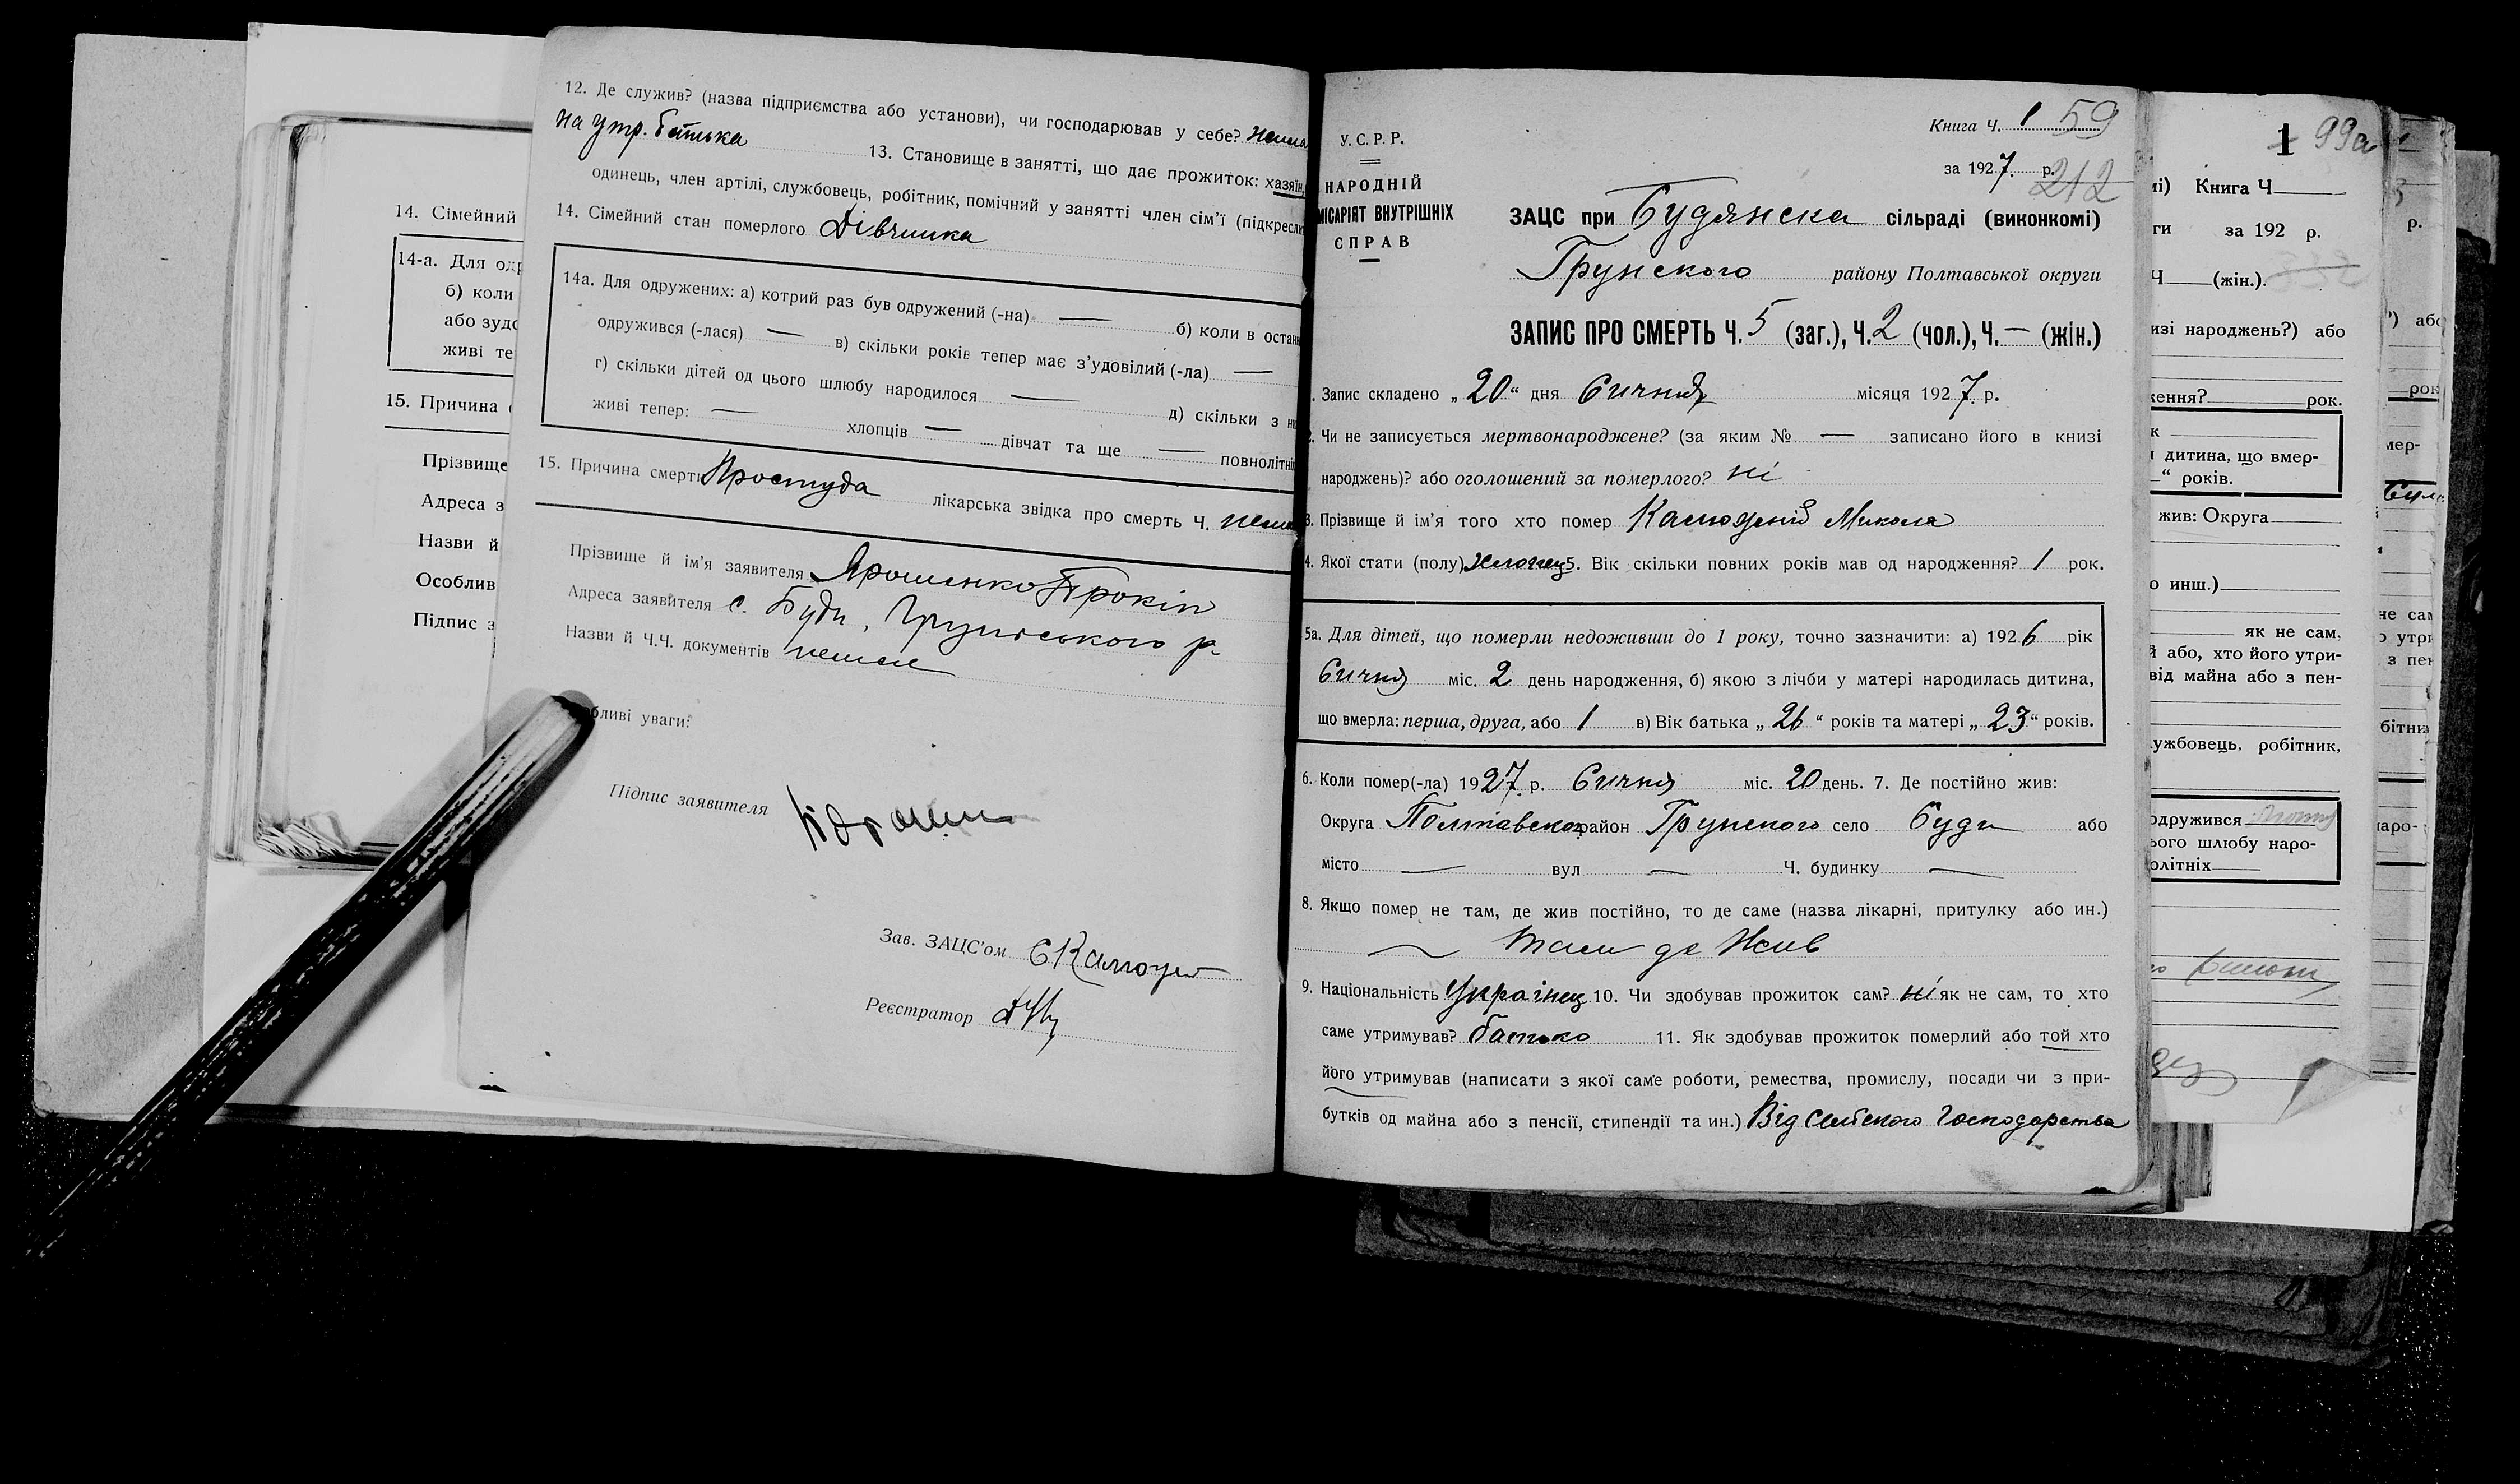 12. Де служив? (назва підприємства або установи), чи господарював у себе?
на утр. батька 13. Становище в занятті, що дає прожиток: хазяїн,
одинець, член артілі, службовець, робітник, помічний у занятті член сім'ї (підкресли
14. Сімейний стан померлого Дівчинка
14а. Для одружених: а) котрий раз був одружений (-на) — б) коли в остан
одружився (-лася) — в) скільки років тепер має з'удовілий (-ла) —
г) скільки дітей од цього шлюбу народилося — д) скільки з н
живі тепер: — хлопців — дівчат та ще — повнолітні
15. Причина смерти Простуда лікарська звідка про смерть Ч. нема
Прізвище й ім'я заявителя Ярошенко Прокіп
Адреса заявителя с. Буди, Грунського р.
Назви й Ч.Ч. документів немає
бливі уваги:
Підпис заявителя
Зав. ЗАЦС'ом
Реєстратор
14. Сімейний
14-а. Для од
б) коли
або зудо
живі те
15. Причина
Прізвище
Адреса з
Назви й
Особлив
Підпис з
Книга Ч. 1 59
У.С.Р.Р.
за 1927 р. 212
НАРОДНІЙ
МІСАРІЯТ ВНУТРІШНІХ
СПРАВ
ЗАЦС при Будянска сільраді (виконкомі)
Грунского району Полтавської округи
ЗАПИС ПРО СМЕРТЬ Ч. 5 (заг.), Ч. 2 (чол.), Ч. — (жін.)
Запис складено „20" дня Січня місяця 1927 р.
2. Чи не записується мертвонароджене? (за яким № — записано його в книзі
народжень)? або оголошений за померлого? ні
3. Прізвище й ім'я того хто помер Микола
4. Якої стати (полу) хлопец 5. Вік скільки повних років мав од народження? 1 рок.
5а. Для дітей, що померли недоживши до 1 року, точно зазначити: а) 1926 рік
Січня міс. 2 день народження, б) якою з лічби у матері народилась дитина,
що вмерла: перша, друга, або 1 в) Вік батька „26" років та матері „23" років.
6. Коли помер(-ла) 1927 р. Січня міс. 20 день. 7. Де постійно жив:
Округа Полтавско район Грунского село Буди або
місто — вул — Ч. будинку —
8. Якщо помер не там, де жив постійно, то де саме (назва лікарні, притулку або ин.)
там де Жив
9. Національність Українец 10. Чи здобував прожиток сам? ні як не сам, то хто
саме утримував? батько 11. Як здобував прожиток померлий або той хто
його утримував (написати з якої саме роботи, ремества, промислу, посади чи з при-
бутків од майна або з пенсії, стипендії та ин.) Від Сельского Господарства
1 99а
мі) Книга Ч
ги за 192 р.
Ч (жін.)
изі народжень?) або
ження? рок.
к
дитина, що вмер-
“ років.
жив: Округа
о инш.)
як не сам,
й або, хто його утри-
від майна або з пен-
ужбовець, робітник,
одружився
ього шлюбу наро-
олітніх
р.
') або
рок
мер-
не сам
о утри
з пен
бітни
аро-